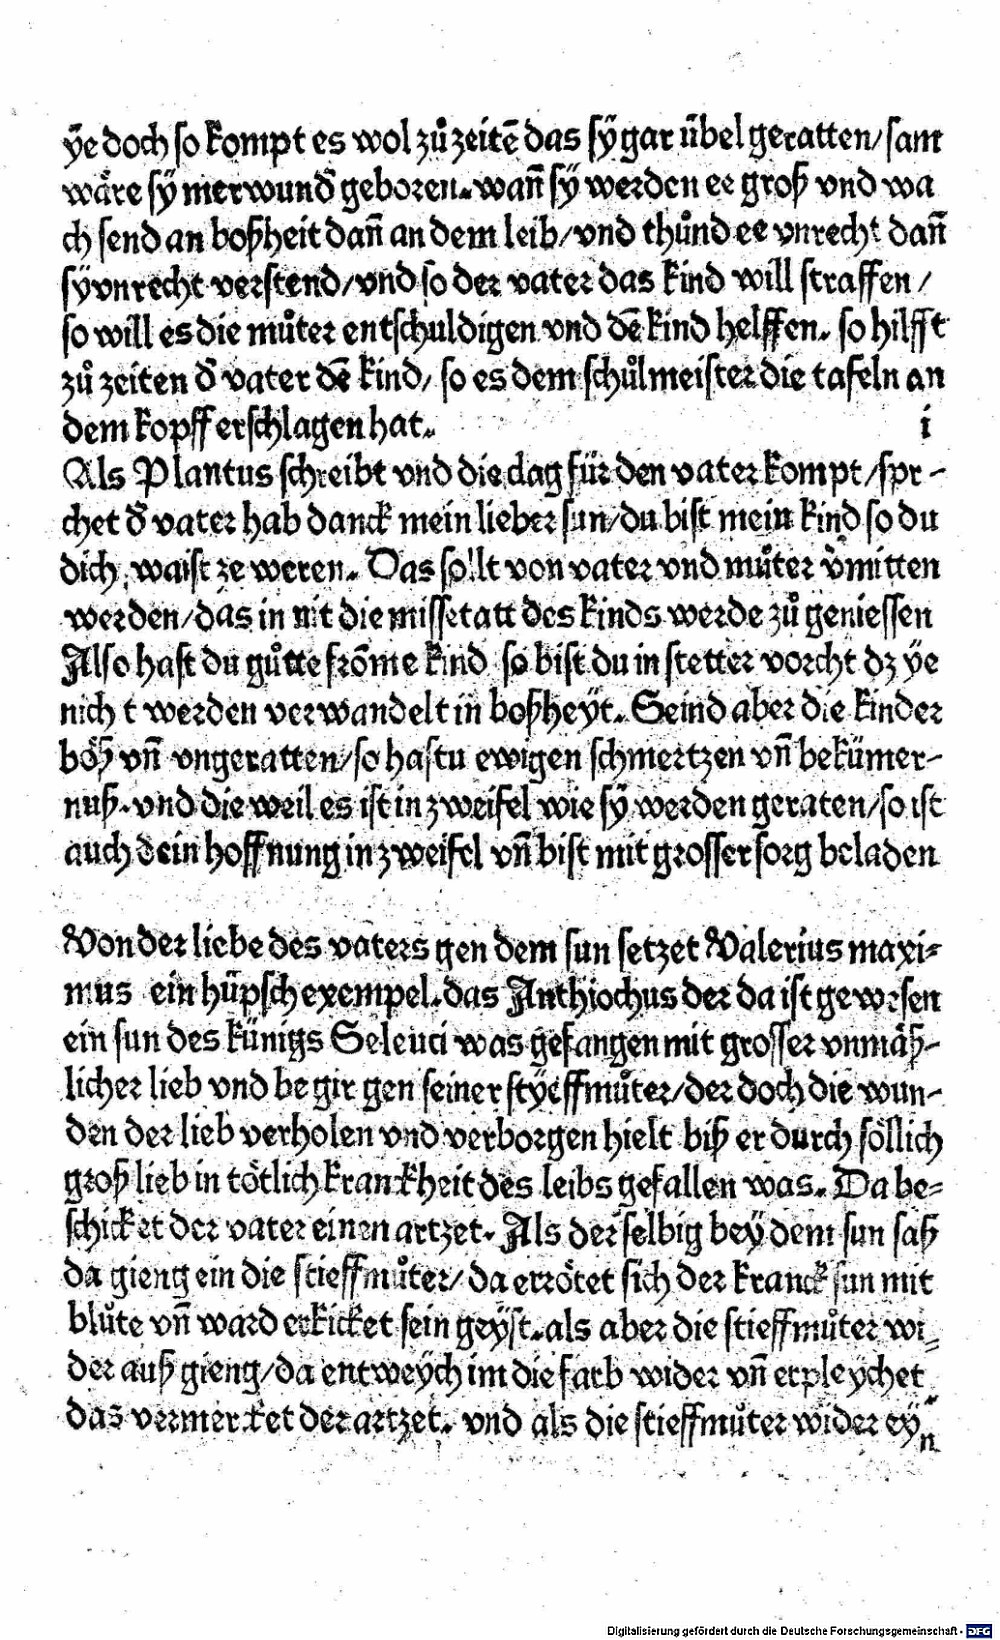 ÿe doch so kompt es wol zů zeitē das sÿ gar übel geratten/ sam
wäre sÿ mer wund' geboren. wañ sÿ werden ee groß vnd wa
ch send an boßheit dañ an dem leib/ vnd thůnd ee vnrecht dañ
sÿ vnrecht verstend/ vnd so der vater das kind will straffen/
so will es die můter entschuldigen vnd dē kind helffen. so hilfft
zů zeiten d' vater dē kind/ so es dem schůlmeister die tafeln an
dem kopff erschlagen hat. i
Als Plantus schreibt vnd die clag für den vater kompt/ spr-
chet d' vater hab danck mein lieber sun/ du bist mein kind so du
dich waist ze weren. Das sollt von vater vnd můter v'mitten
werden/ das in nit die missetatt des kinds werde zů geniessen
Also hast du gůtte frōme kind so bist du in stetter vorcht dz ÿe
nich t werden verwandelt in boßheyt. Seind aber die kinder
böß vñ vngeratten/ so hastu ewigen schmertzen vñ bekümer-
nuß. vnd die weil es ist in zweifel wie sÿ werden geraten/ so ist
auch dein hoffnung in zweifel vñ bist mit grosser sorg beladen
Von der liebe des vaters gen dem sun setzet Valerius maxi-
mus ein hüpsch exempel. das Anthiochus der da ist gewesen
ein sun des künigs Seleuci was gefangen mit grosser vnmäß-
licher lieb vnd be gir gen seiner stÿeffmůter/ der doch die wun-
den der lieb verholen vnd verborgen hielt biß er durch söllich
groß lieb in tötlich kranckheit des leibs gefallen was. Da be-
schicket der vater einen artzet. Als der selbig beÿ dem sun saß
da gieng ein die stieffmůter/ da errötet sich der kranck sun mit
blůte vñ ward erkicket sein geÿst. als aber die stieffmůter wi-
der auß gieng/ da entweÿch im die farb wider vñ erpleychet
das vermercket der artzet. vnd als die stieffmůter wider eÿn
Digitalisierung gefördert durch die Deutsche Forschungsgemeinschaft - DFG